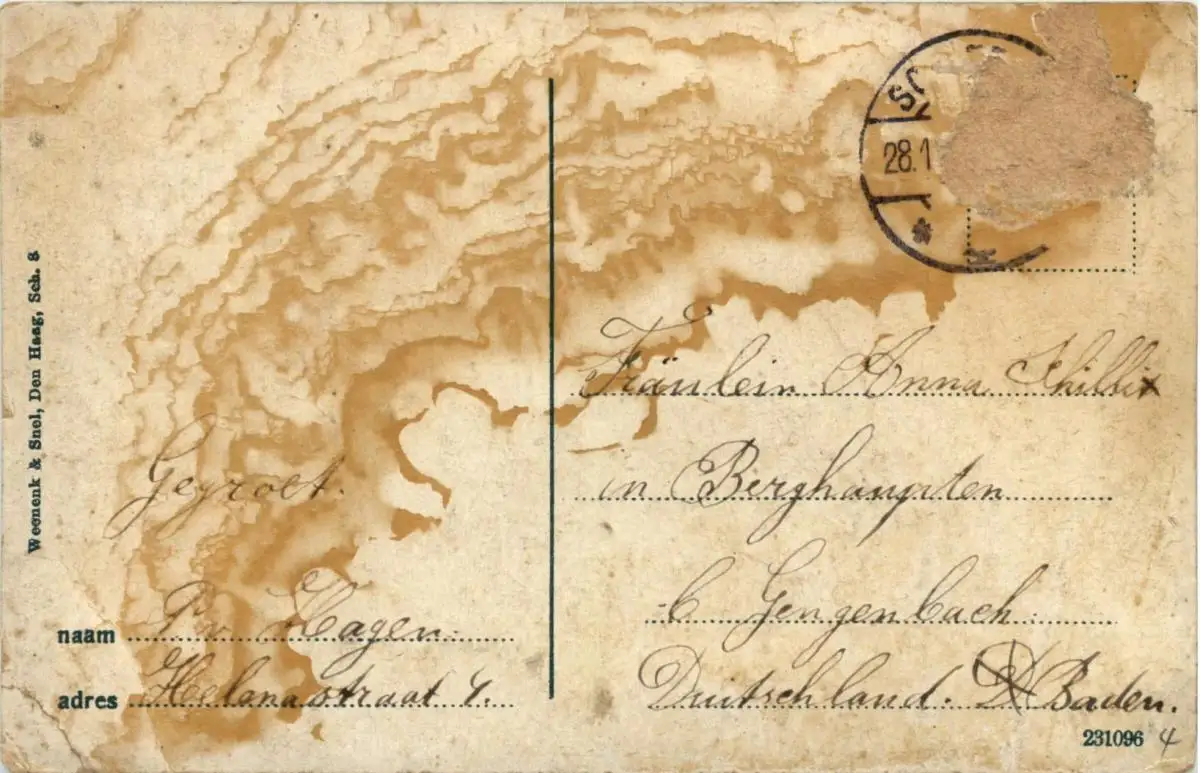 Weenenk & Snel, Den Haag, Sch. 8
28.1
Gegroet.
naam P. v. Hagen.
adres Helenastraat 4.
Fräulein Anna
in Berghaupten
b Gengenbach
Deutschland. Baden.
231096 4